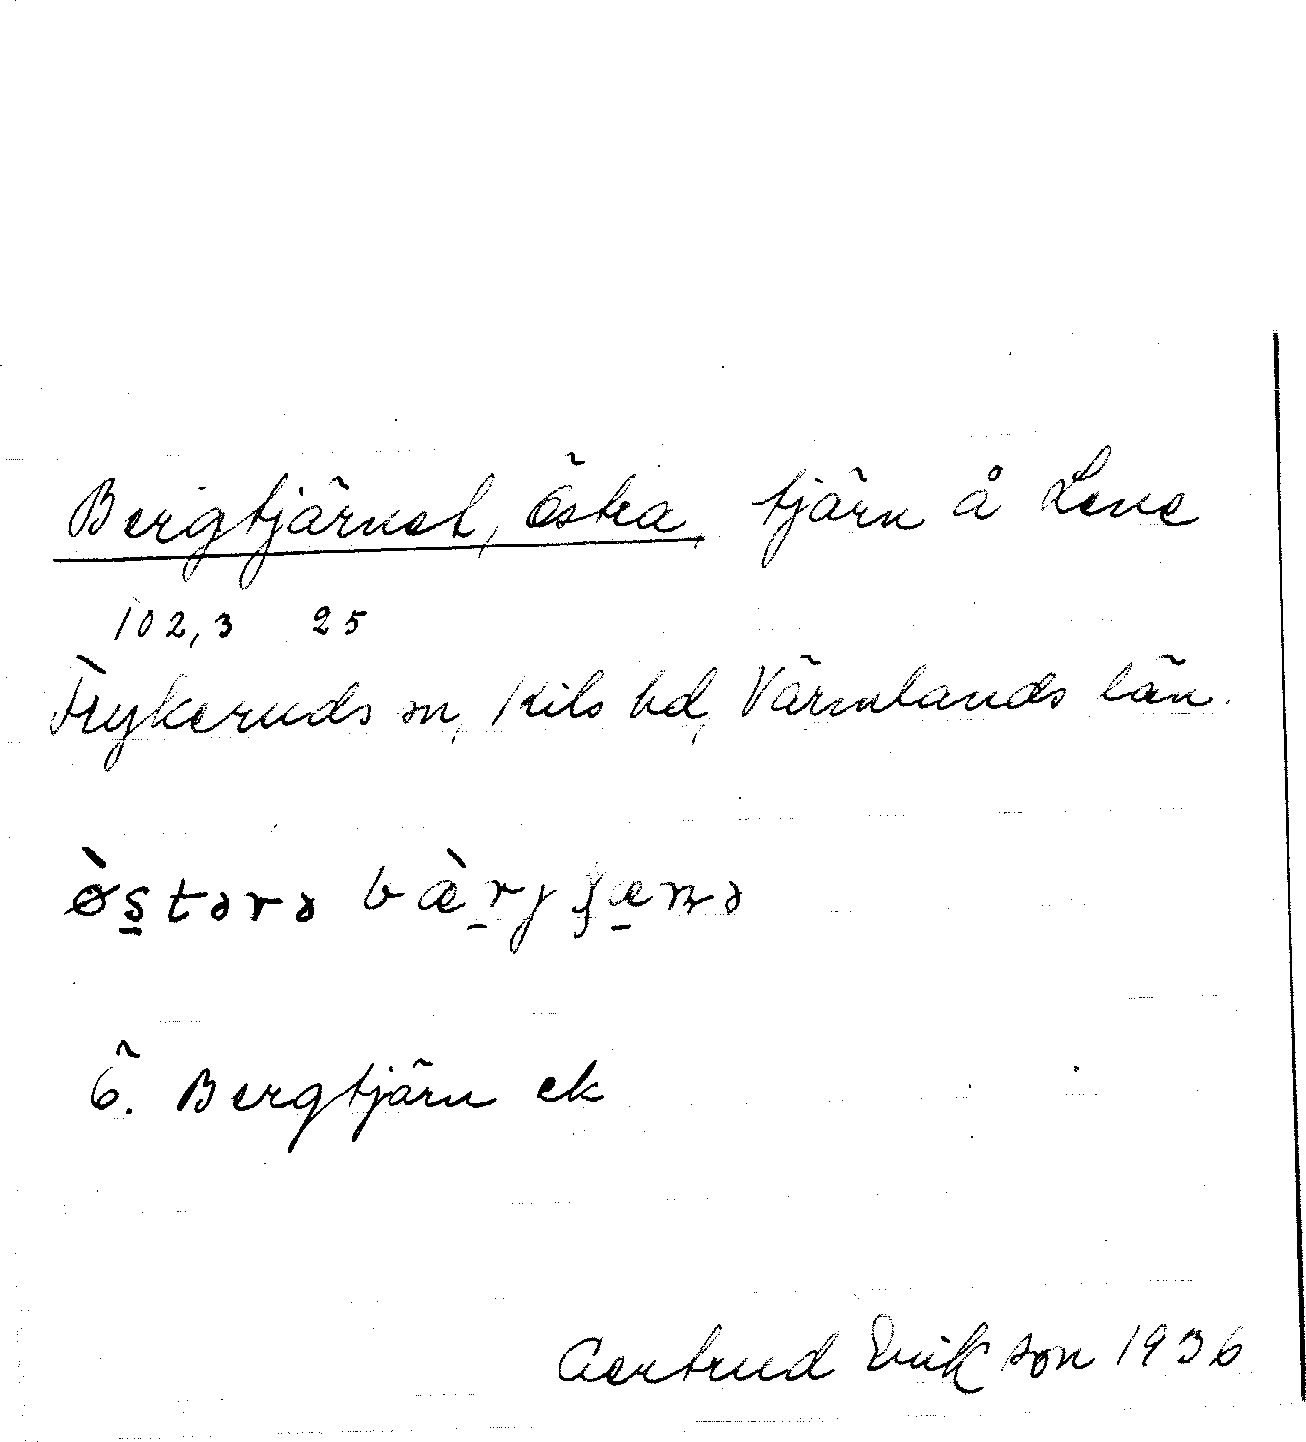 Bergtjärnet, Östra, tjärn å Lene
102,3 25
Frykeruds sn, Kils hd, Värmlands län.
ö̀stərə bæ̀rjʂæɳə
Ö. Bergtjärn ek
Gertrud Erikson 1936